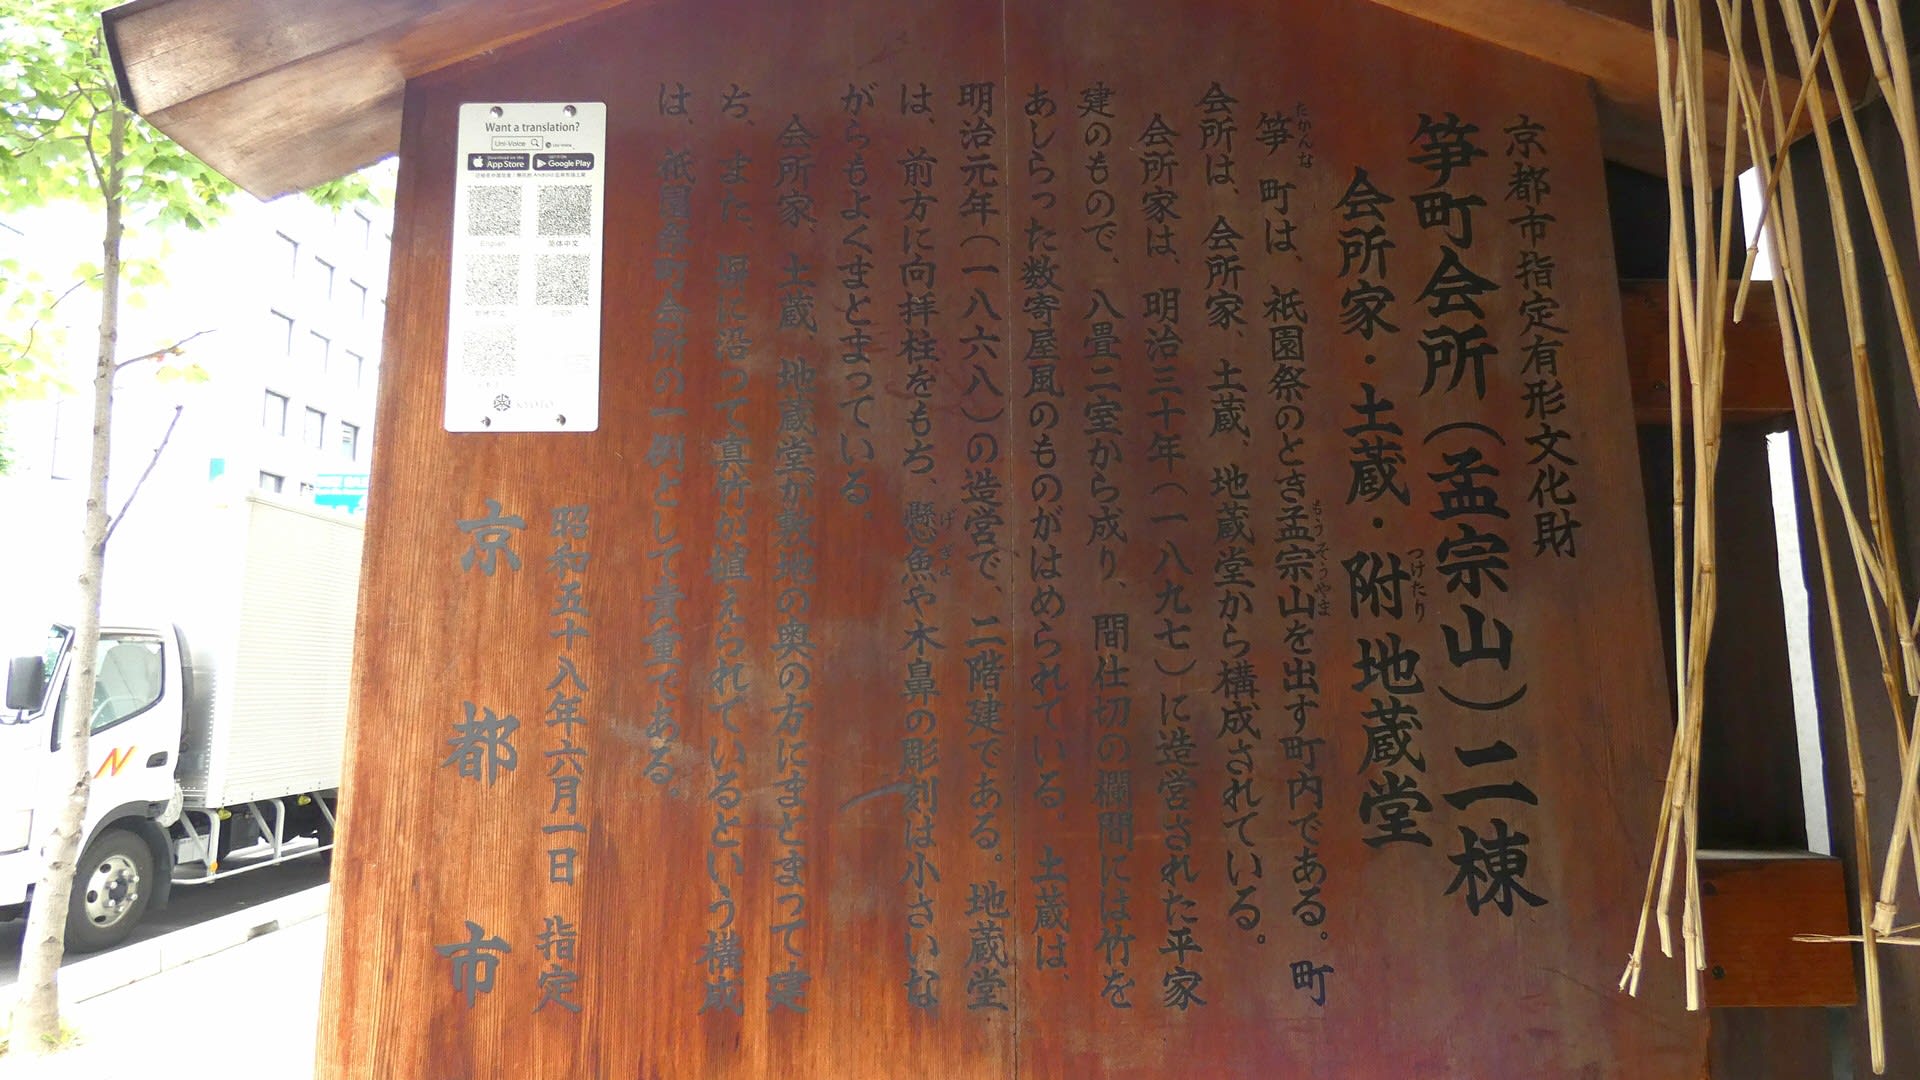 京都市指定有形文化財
筝町会所（孟宗山）二棟
会所家・土蔵・附つけたり地蔵堂
筝たかんな町は、祇園祭のとき孟宗山もうそうやまを出す町内である。町
会所は、会所家、土蔵、地蔵堂から構成されている。
会所家は、明治三十年（一八九七）に造営された平家
建のもので、八畳二室から成り、間仕切の欄間には竹を
あしらった数寄屋風のものがはめられている。土蔵は、
明治元年（一八六八）の造営で、二階建である。地蔵堂
は、前方に向拝柱をもち、懸魚げぎょや木鼻の彫刻は小さいな
がらもよくまとまっている。
会所家、土蔵、地蔵堂が敷地の奥の方にまとまって建
ち、また、塀に沿って真竹が植えられているという構成
は、祇園祭町会所の一例として貴重である。
昭和五十八年六月一日 指定
京都市
Want a translation?
Uni-Voice
Uni-Voice
Download on the App Store
GET IT ON Google Play
English
简体中文
繁體中文
한국어
KYOTO
N